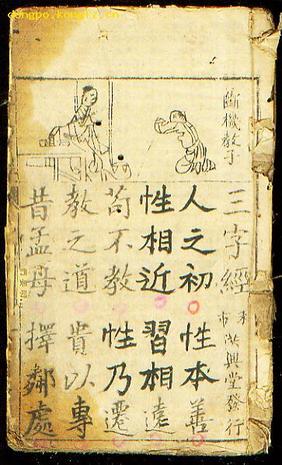 dongpo.kongfz.cn
斷機教子
三字經
興堂發行
人之初 性本善
性相近 習相遠
苟不教 性乃遷
教之道 貴以專
昔孟母 擇鄰處